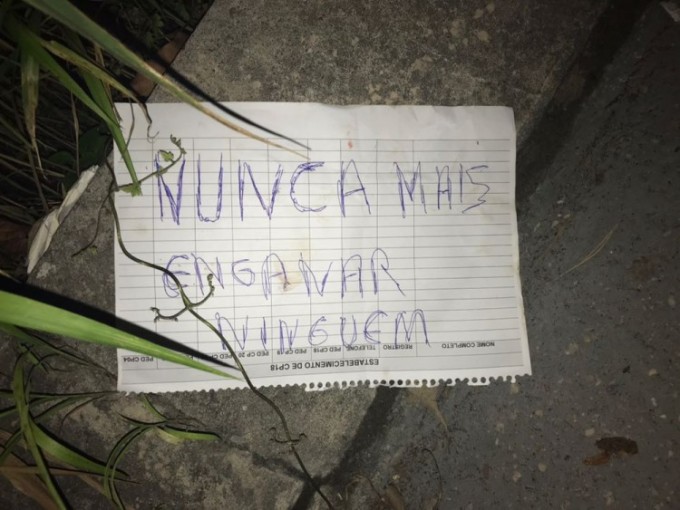 NUNCA MAIS
ENGANAR
NINGUEM
ESTABELECIMENTO DE CP18
NOME COMPLETO
REGISTRO
TELEFONE
PED CP18
PED CP 20
PED CP04